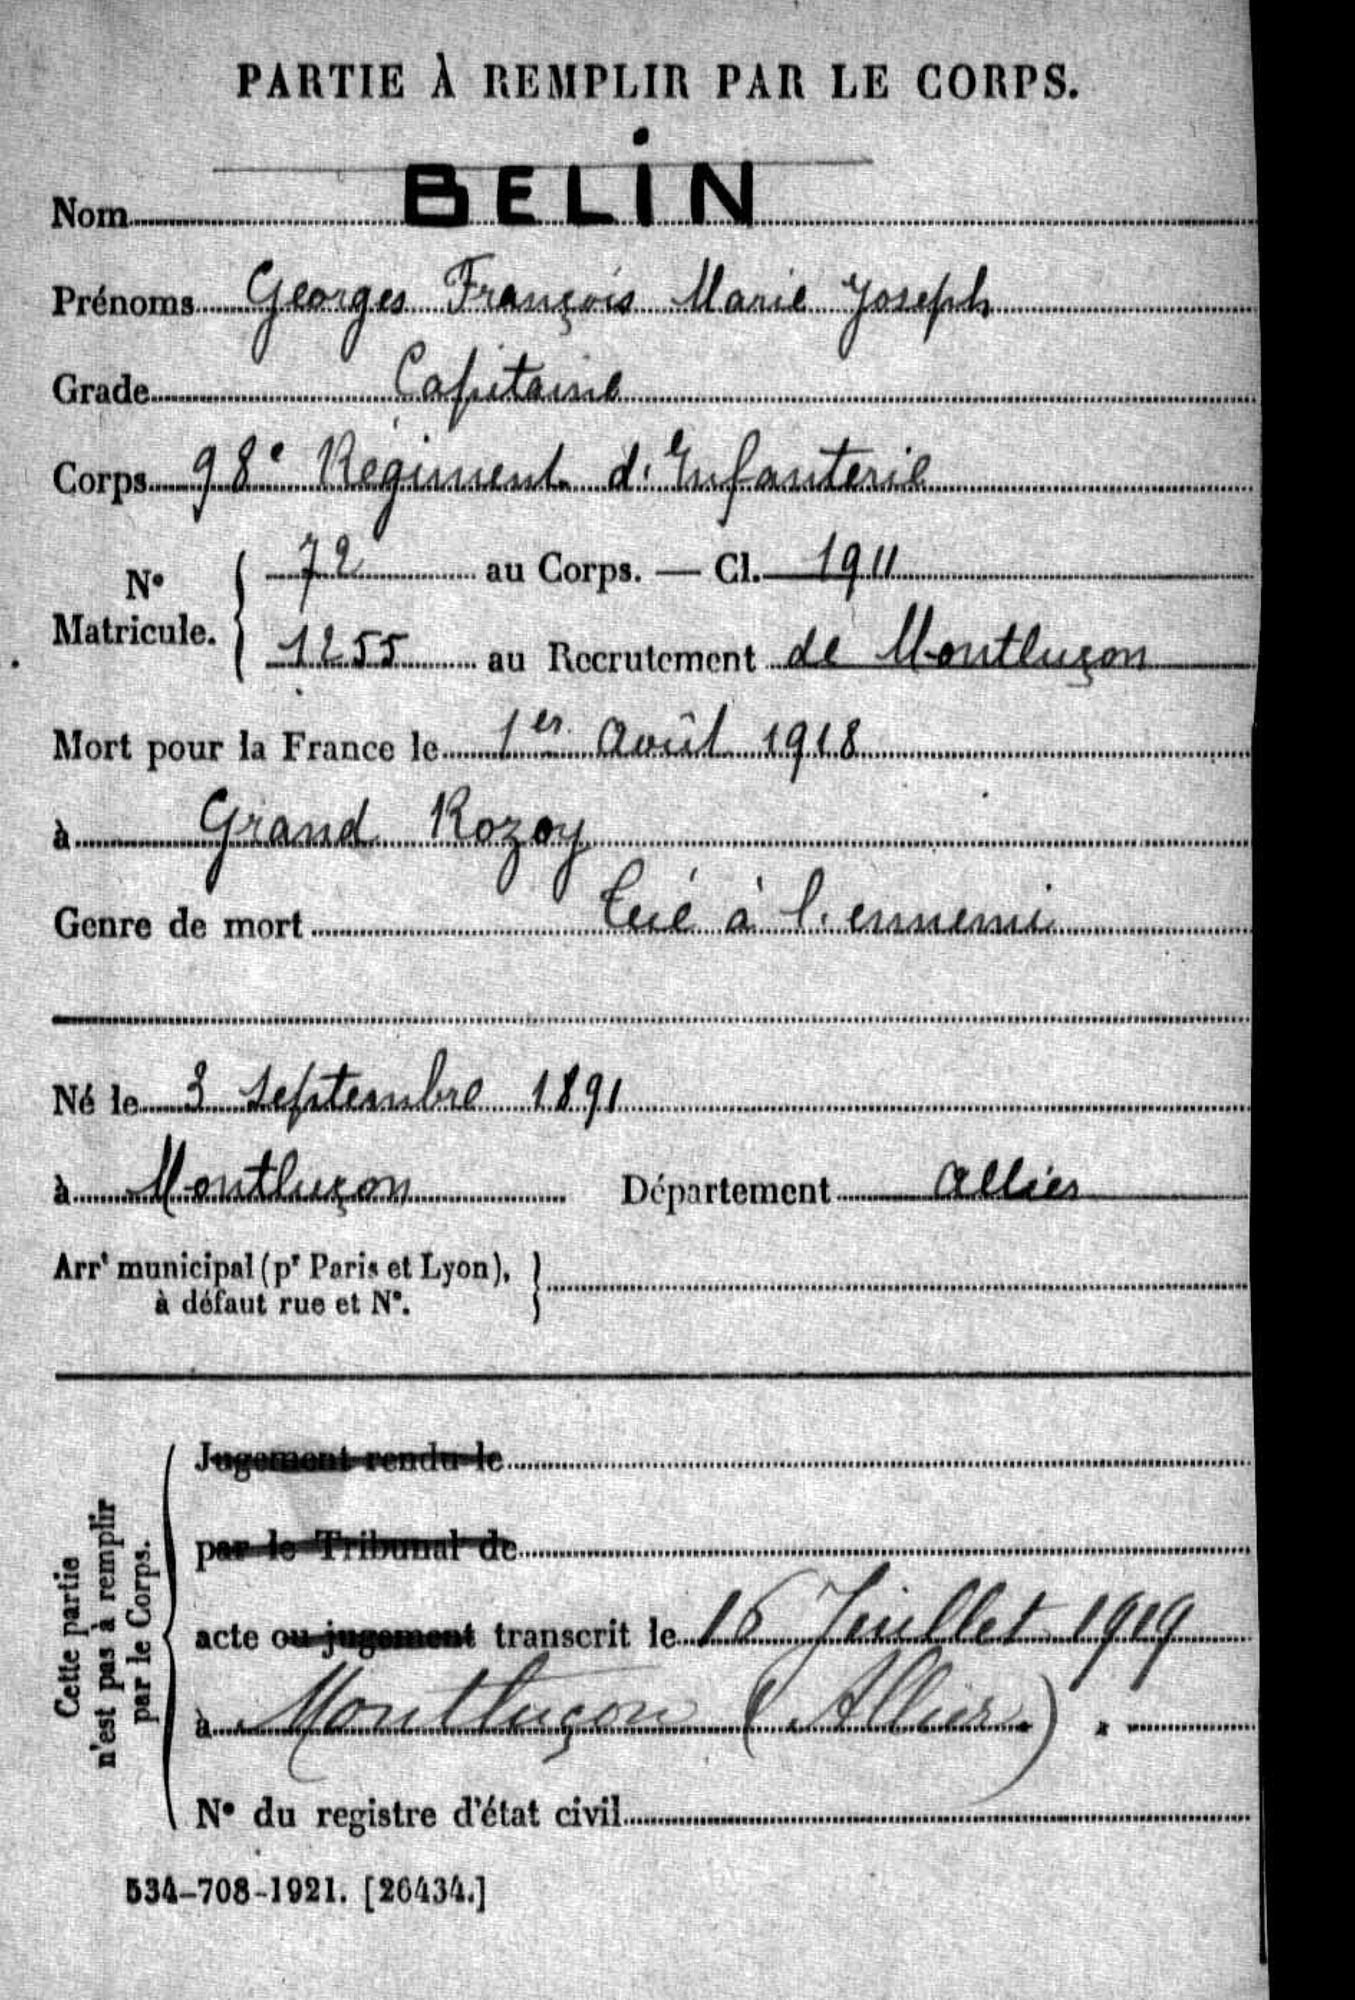 PARTIE À REMPLIR PAR LE CORPS.
Nom BELIN
Prénoms Georges François Marie Joseph
Grade Capitaine
Corps 98e Régiment d'Infanterie
N° Matricule. 72 au Corps. — Cl. 1911
1255 au Recrutement de Montluçon
Mort pour la France le 1er Août 1918
à Grand Rozoy
Genre de mort tué à l'ennemi
Né le 3 Septembre 1891
à Montluçon Département Allier
Arrt municipal (pr Paris et Lyon),
à défaut rue et N°.
Cette partie
n'est pas à remplir
par le Corps.
Jugement rendu le
par le Tribunal de
acte ou jugement transcrit le 16 Juillet 1919
à Montluçon (Allier).
N° du registre d'état civil
534-708-1921. [26434.]